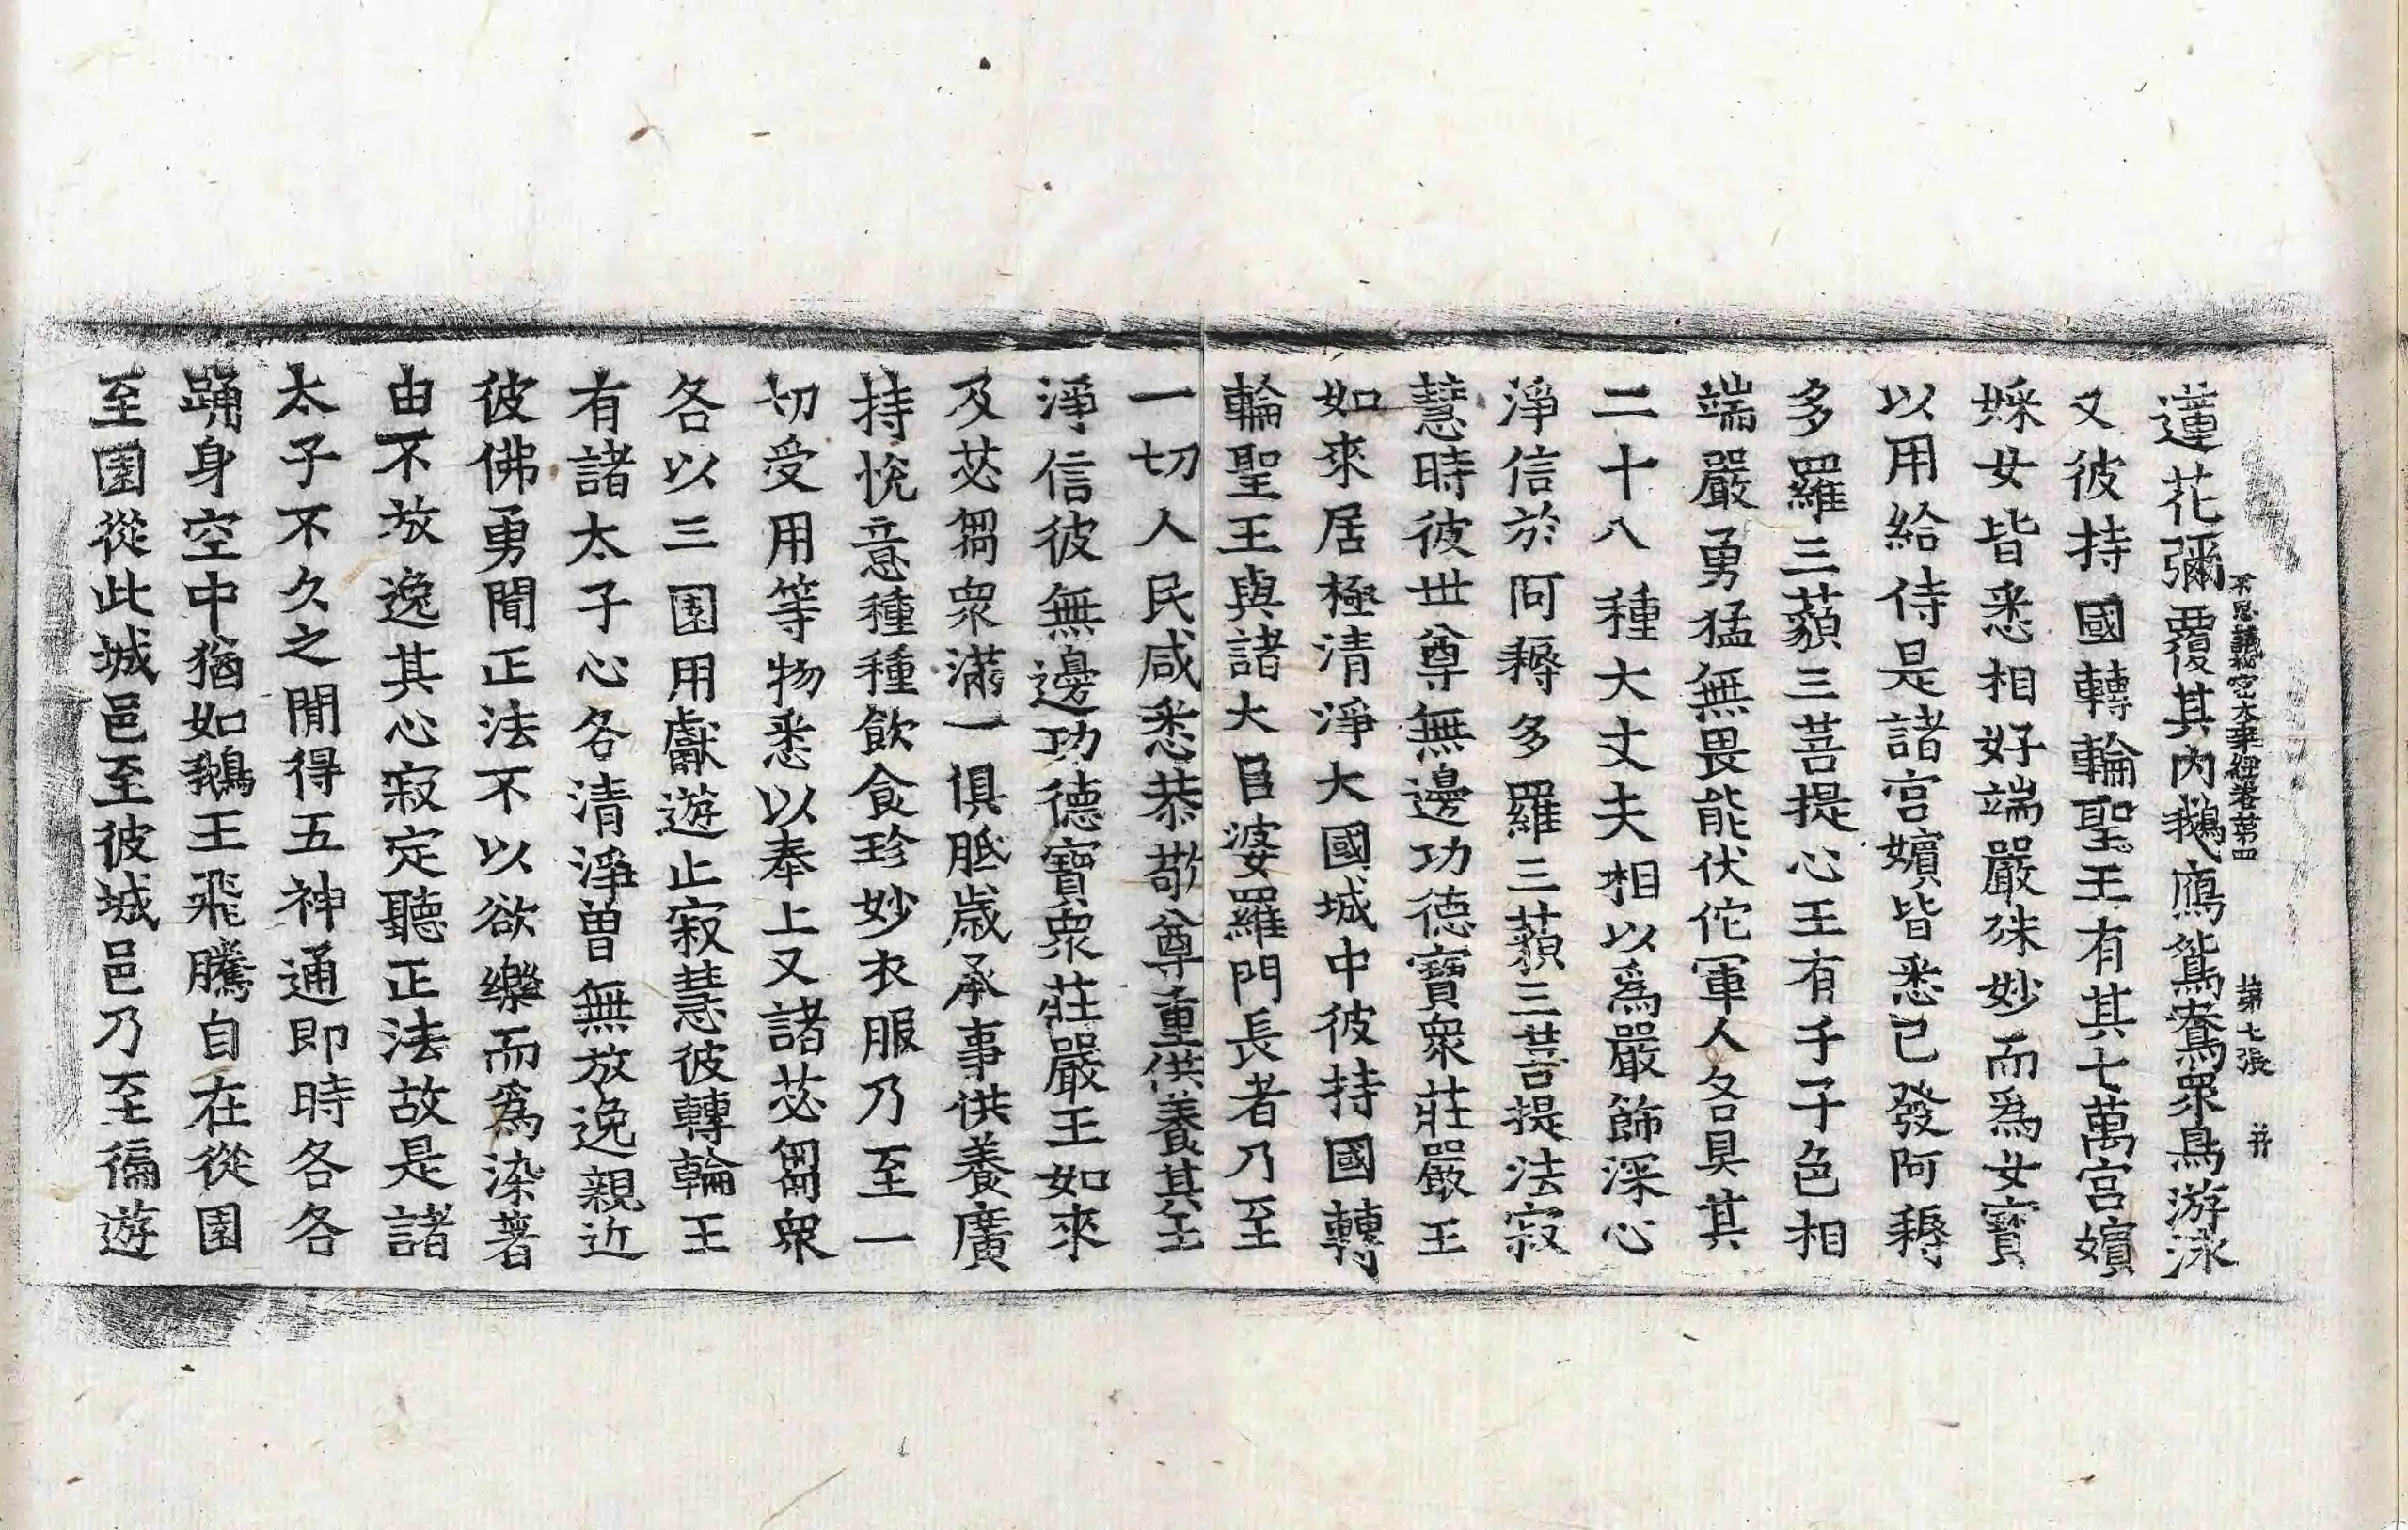 蓮花彌覆其內鵝鴈鴛鴦衆鳥游泳
不思議秘密大乘經卷第四 第七張 井
又彼持國轉輪聖王有其七萬宮嬪
婇女皆悉相好端嚴殊妙而爲女寶
以用給侍是諸宮嬪皆悉已發阿耨
多羅三藐三菩提心王有千子色相
端嚴勇猛無畏能伏佗軍人各具其
二十八種大丈夫相以爲嚴飾深心
淨信於阿耨多羅三藐三菩提法寂
慧時彼世尊無邊功德寶衆莊嚴王
如來居極清淨大國城中彼持國轉
輪聖王與諸大臣婆羅門長者乃至
一切人民咸悉恭敬尊重供養其王
淨信彼無邊功德寶衆莊嚴王如來
及苾芻衆滿一俱胝歲承事供養廣
持悅意種種飮食珍妙衣服乃至一
切受用等物悉以奉上又諸苾芻衆
各以三園用獻遊止寂慧彼轉輪王
有諸太子心各清淨曾無放逸親近
彼佛勇聞正法不以欲樂而爲染著
由不放逸其心寂定聽正法故是諸
太子不久之閒得五神通卽時各各
踊身空中猶如鵝王飛騰自在從園
至園從此城邑至彼城邑乃至徧遊